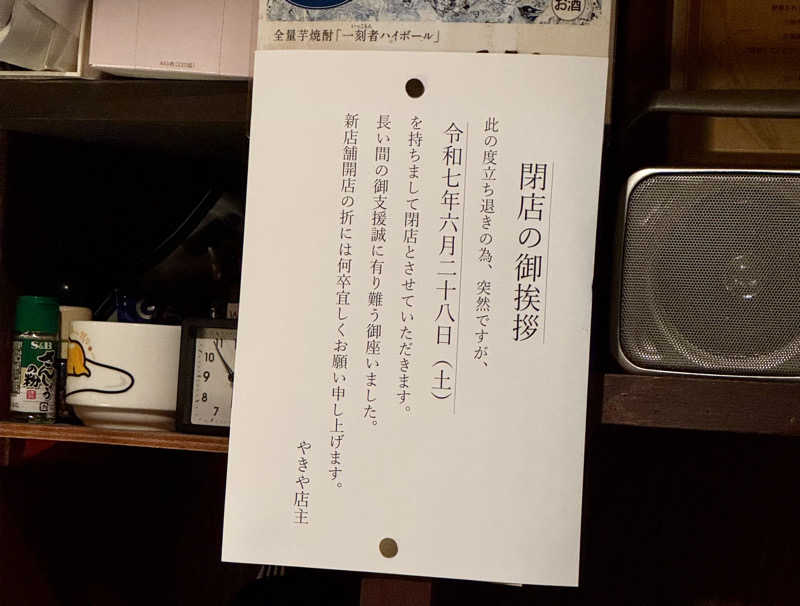 お酒
全量芋焼酎「一刻者ハイボール」
いっこもん
閉店の御挨拶
此の度立ち退きの為、突然ですが、
令和七年六月二十八日（土）
を持ちまして閉店とさせていただきます。
長い間の御支援誠に有り難う御座いました。
新店舗開店の折には何卒宜しくお願い申し上げます。
やきや店主
S&B
さんしょうの粉
11
10
9
8
7